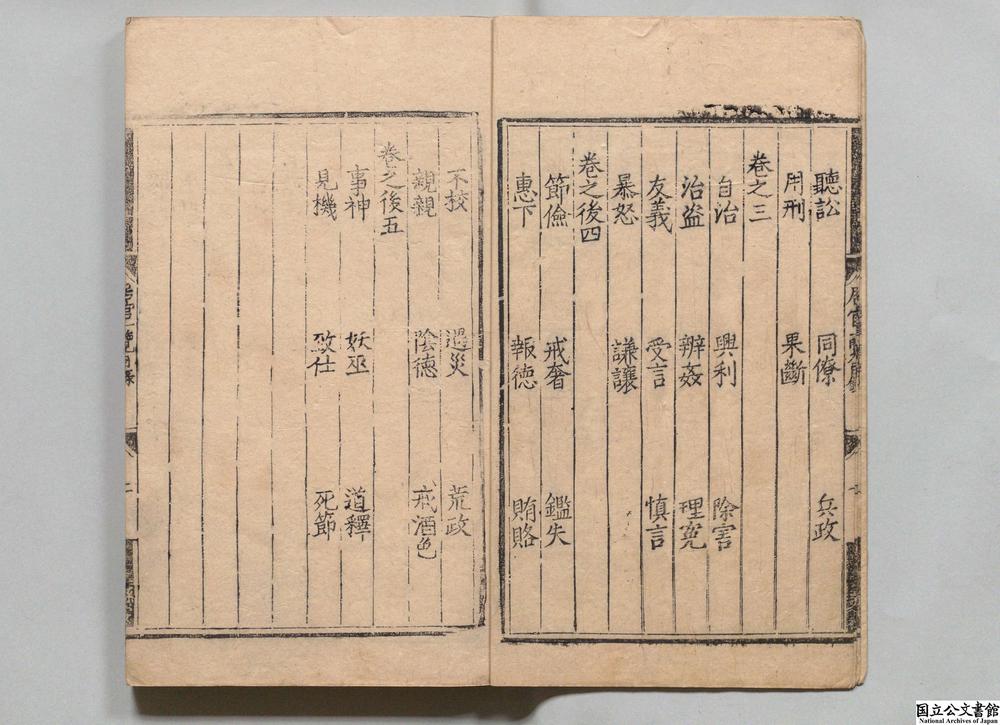 聽訟 同僚 兵政
用刑 果斷
卷之三
自治 興利 除害
治盗 辨姦 理寃
友義 受言 慎言
暴怒 謙讓
卷之後四
節儉 戒奢 鑑失
惠下 報德 賄賂
不校 遇災 荒政
親親 陰德 戒酒色
卷之後五
事神 妖巫 道釋
見機 致仕 死節
居官一覽目錄
国立公文書館
National Archives of Japan